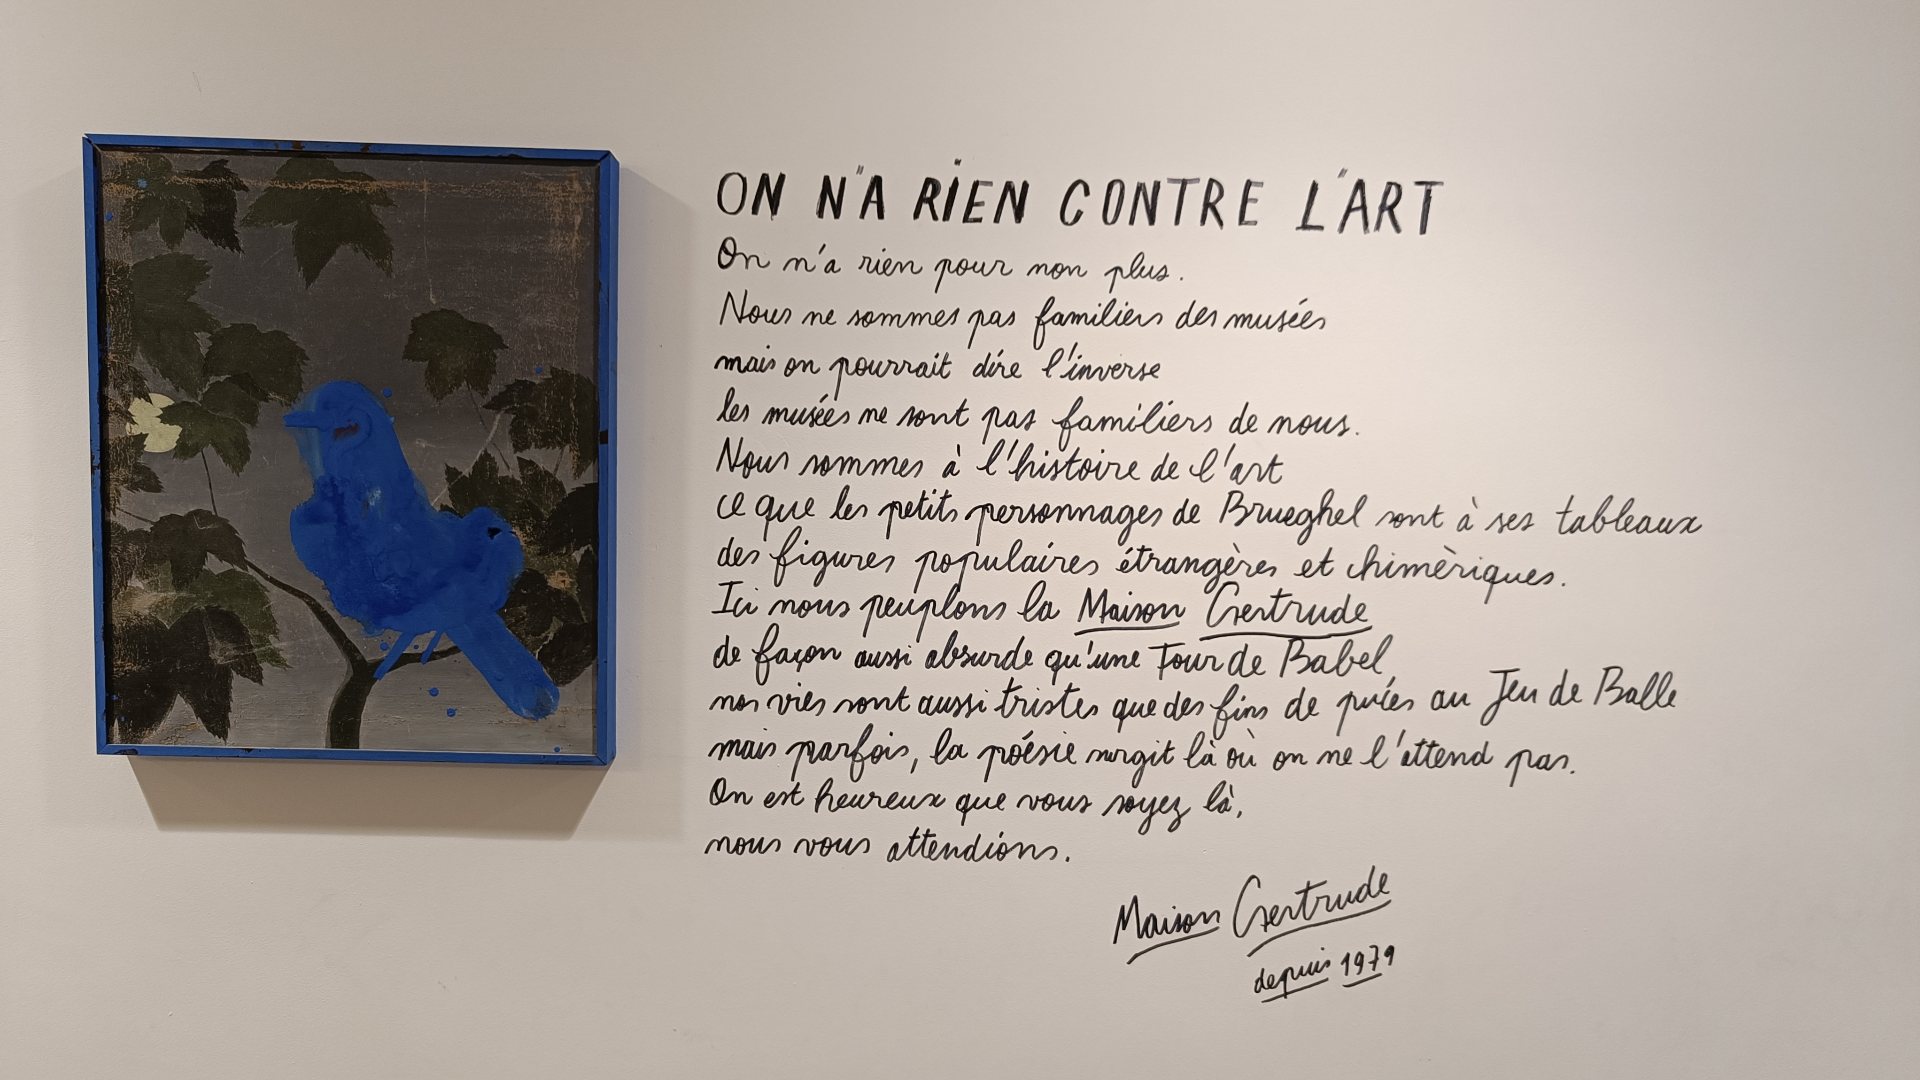 ON N'A RIEN CONTRE L'ART
On n'a rien pour non plus.
Nous ne sommes pas familiers des musées
mais on pourrait dire l'inverse
les musées ne sont pas familiers de nous.
Nous sommes à l'histoire de l'art
ce que les petits personnages de Brueghel sont à ses tableaux
des figures populaires étrangères et chimèriques.
Ici nous peuplons la Maison Gertrude
de façon aussi absurde qu'une Tour de Babel,
nos vies sont aussi tristes que des fins de puces au Jeu de Balle
mais parfois, la poésie surgit là où on ne l'attend pas.
On est heureux que vous soyez là,
nous vous attendions.
Maison Gertrude
depuis 1979